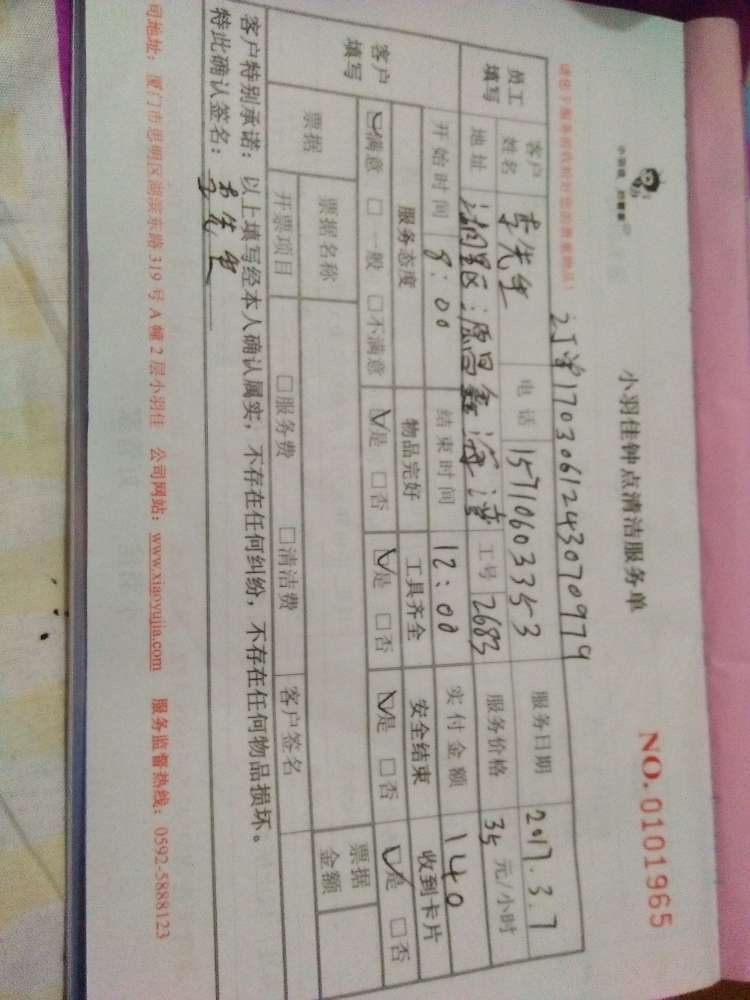 小羽佳钟点清洁服务单
NO.0101965
订单1703061243070979
请您于服务前收检好您的贵重物品!
员工填写 客户姓名 李先生 电话 15710603353 服务日期 2017.3.7
地址 湖里区源昌鑫海湾 工号 2683 服务价格 35 元/小时
客户填写 开始时间 8:00 结束时间 12:00 实付金额 140
服务态度 物品完好 工具齐全 安全结束 收到卡片
☑满意 □一般 □不满意 ☑是 □否 ☑是 □否 ☑是 □否 ☑是 □否
票据 票据名称 票据金额
开票项目 □服务费 □清洁费 客户签名
客户特别承诺:以上填写经本人确认属实,不存在任何纠纷,不存在任何物品损坏。
特此确认签名:李先生
司地址:厦门市思明区湖滨东路319号A幢2层小羽佳 公司网站:www.xiaoyujia.com 服务监督热线:0592-5888123